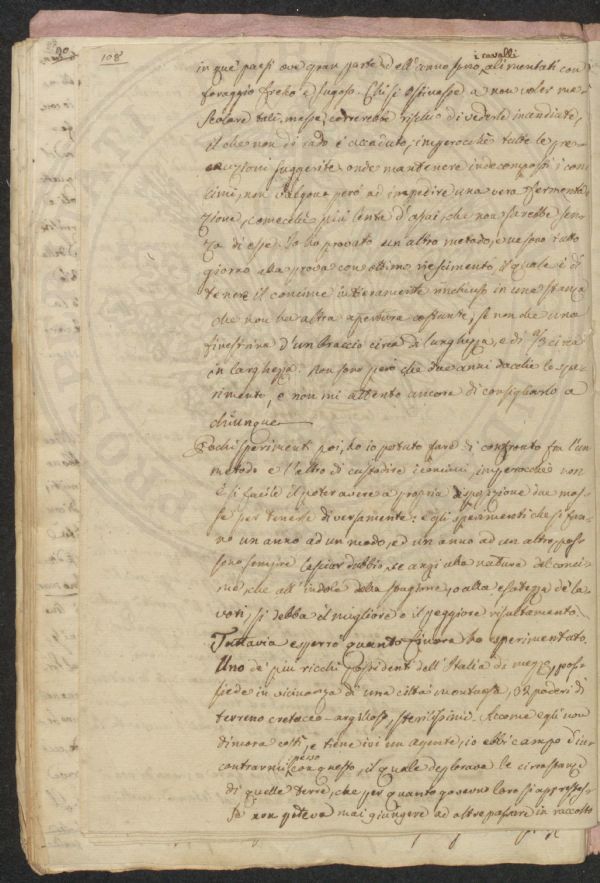 108
i cavalli
in que' paesi ove gran parte dell'anno sono alimentati con
foraggio fresco e sugoso. Chi si ostinasse a non voler me-
scolare tali masse, correrebbe rischio di vederle incendiate,
il che non di rado è accaduto, imperocchè tutte le pre-
cauzioni suggerite onde mantenere indecomposti i con-
cimi, non valgono però ad impedire una vera fermenta-
zione, comecchè più lenta d'assai, che non sarebbe sen-
za di esse. Io ho provato un altro metodo, e ne sono tutto
giorno alla prova con ottimo riescimento, il quale è di
tenere il concime intieramente rinchiuso in una stanza
che non ha altra apertura costante, se non che una
finestrina d'un braccio circa di lunghezza, e di 2/3 circa
in larghezza. Non sono però che due anni dacchè lo spe-
rimento, e non mi attento ancora di consigliarlo a
chiunque.
Pochi sperimenti poi, ho io potuto fare di confronto fra l'un
metodo e l'altro di custodire i concimi, imperocchè non
è sì facile il poter avere a propria disposizione due mas-
se per tenerle diversamente: e gli sperimenti che si fan-
no un anno ad un modo, ed un anno ad un altro, pos-
sono sempre lasciar dubbio, se anzi alla natura del conci-
me, che all'indole della stagione, o alla esatezza de' la-
vori, si debba il migliore o il peggiore risultamento.
Tuttavia esporrò quanto finora ho sperimentato.
Uno de' più ricchi possidenti dell'Italia di mezzo, pos-
siede in vicinanza di una città montuosa, 32 poderi di
terreno cretaceo-argilloso, sterilissimi. Siccome egli non
dimora costì, e tiene ivi un agente, io ebbi campo d'in-
contrarmi con questo, il quale deplorava le circostanze
di quelle terre, che per quanto governo loro si appresta-
se non poteva mai giungere ad oltrepassare in raccolto